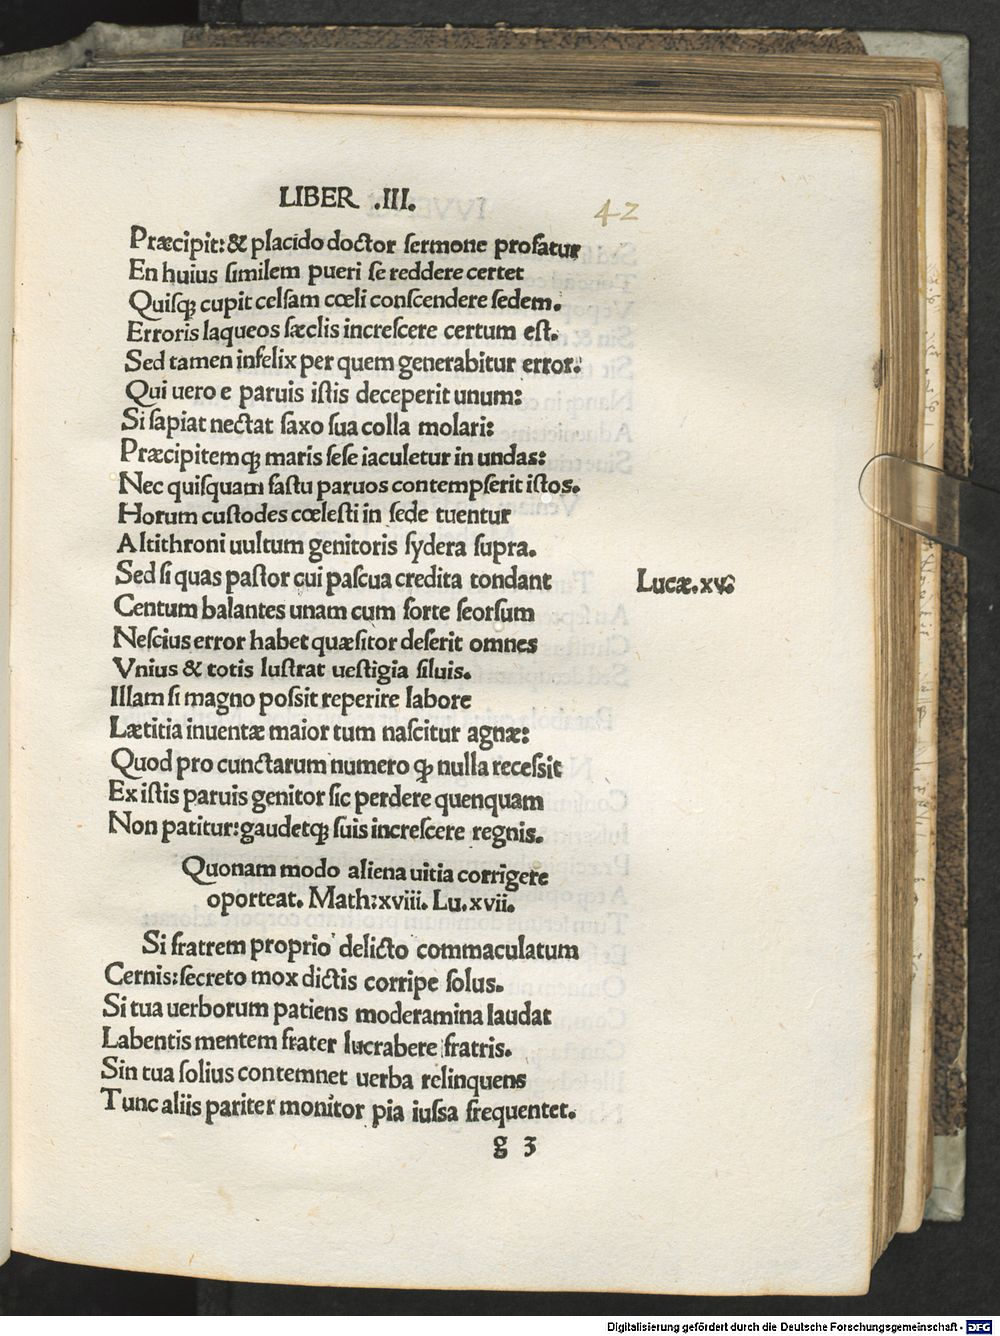 LIBER .III.
42
Præcipit: & placido doctor sermone profatur
En huius similem pueri se reddere certet
Quisq; cupit celsam cœli conscendere sedem.
Erroris laqueos sæclis increscere certum est.
Sed tamen infelix per quem generabitur error:
Qui uero e paruis istis deceperit unum:
Si sapiat nectat saxo sua colla molari:
Præcipitemq; maris sese iaculetur in undas:
Nec quisquam fastu paruos contempserit istos.
Horum custodes cœlesti in sede tuentur
Altithroni uultum genitoris sydera supra.
Sed si quas pastor cui pascua credita tondant
Lucæ.xv.
Centum balantes unam cum sorte seorsum
Nescius error habet quæsitor deserit omnes
Vnius & totis lustrat uestigia siluis.
Illam si magno possit reperire labore
Lætitia inuentæ maior tum nascitur agnæ:
Quod pro cunctarum numero q; nulla recessit
Ex istis paruis genitor sic perdere quenquam
Non patitur: gaudetq; suis increscere regnis.
Quonam modo aliena uitia corrigere
oporteat. Math:xviii. Lu.xvii.
Si fratrem proprio delicto commaculatum
Cernis: secreto mox dictis corripe solus.
Si tua uerborum patiens moderamina laudat
Labentis mentem frater lucrabere fratris.
Sin tua solius contemnet uerba relinquens
Tunc aliis pariter monitor pia iussa frequentet.
g 3
Digitalisierung gefördert durch die Deutsche Forschungsgemeinschaft - DFG